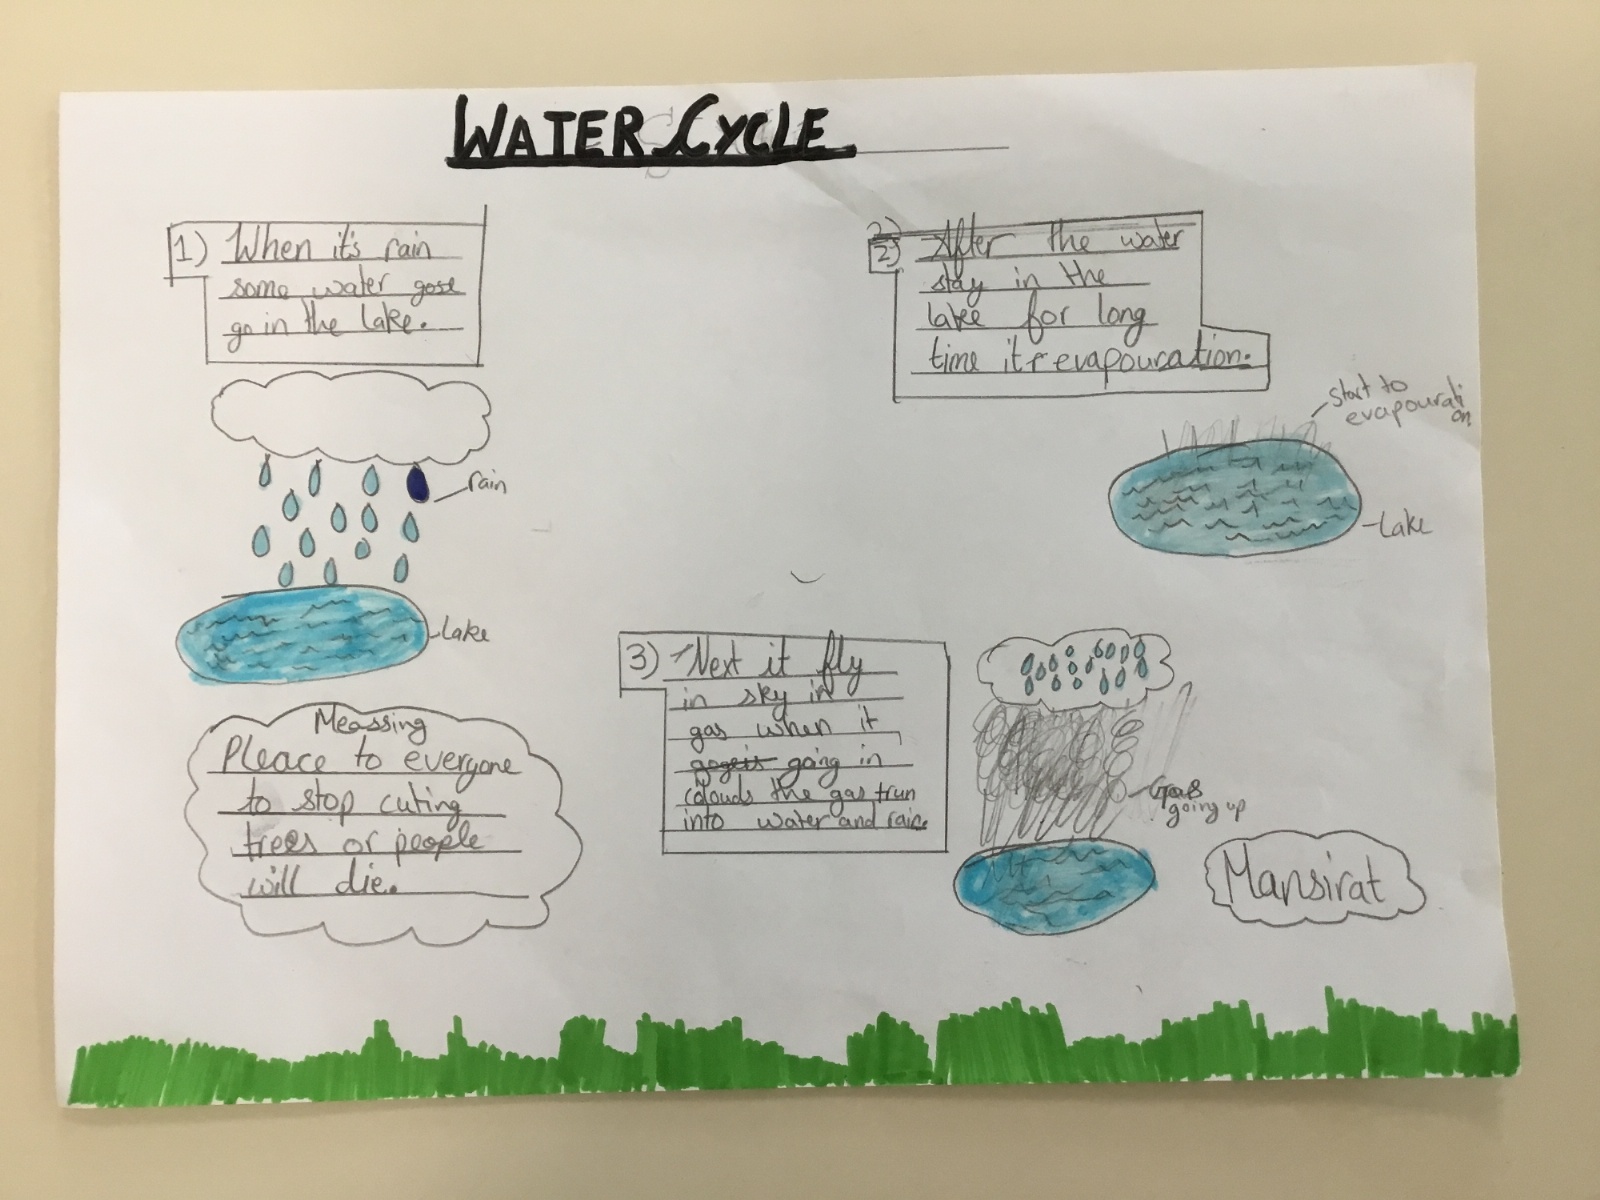 WATER CYCLE
1) When it's rain
some water gose
go in the lake.
rain
Lake
2)
2) After the water
stay in the
lake for long
time it evapouration.
start to
evapourati
on
Lake
3) Next it fly
in sky in
gas when it
going in
colouds the gas trun
into water and rain
Gas
going up
Meassing
Pleace to everyone
to stop cuting
trees or people
will die.
Mansirat